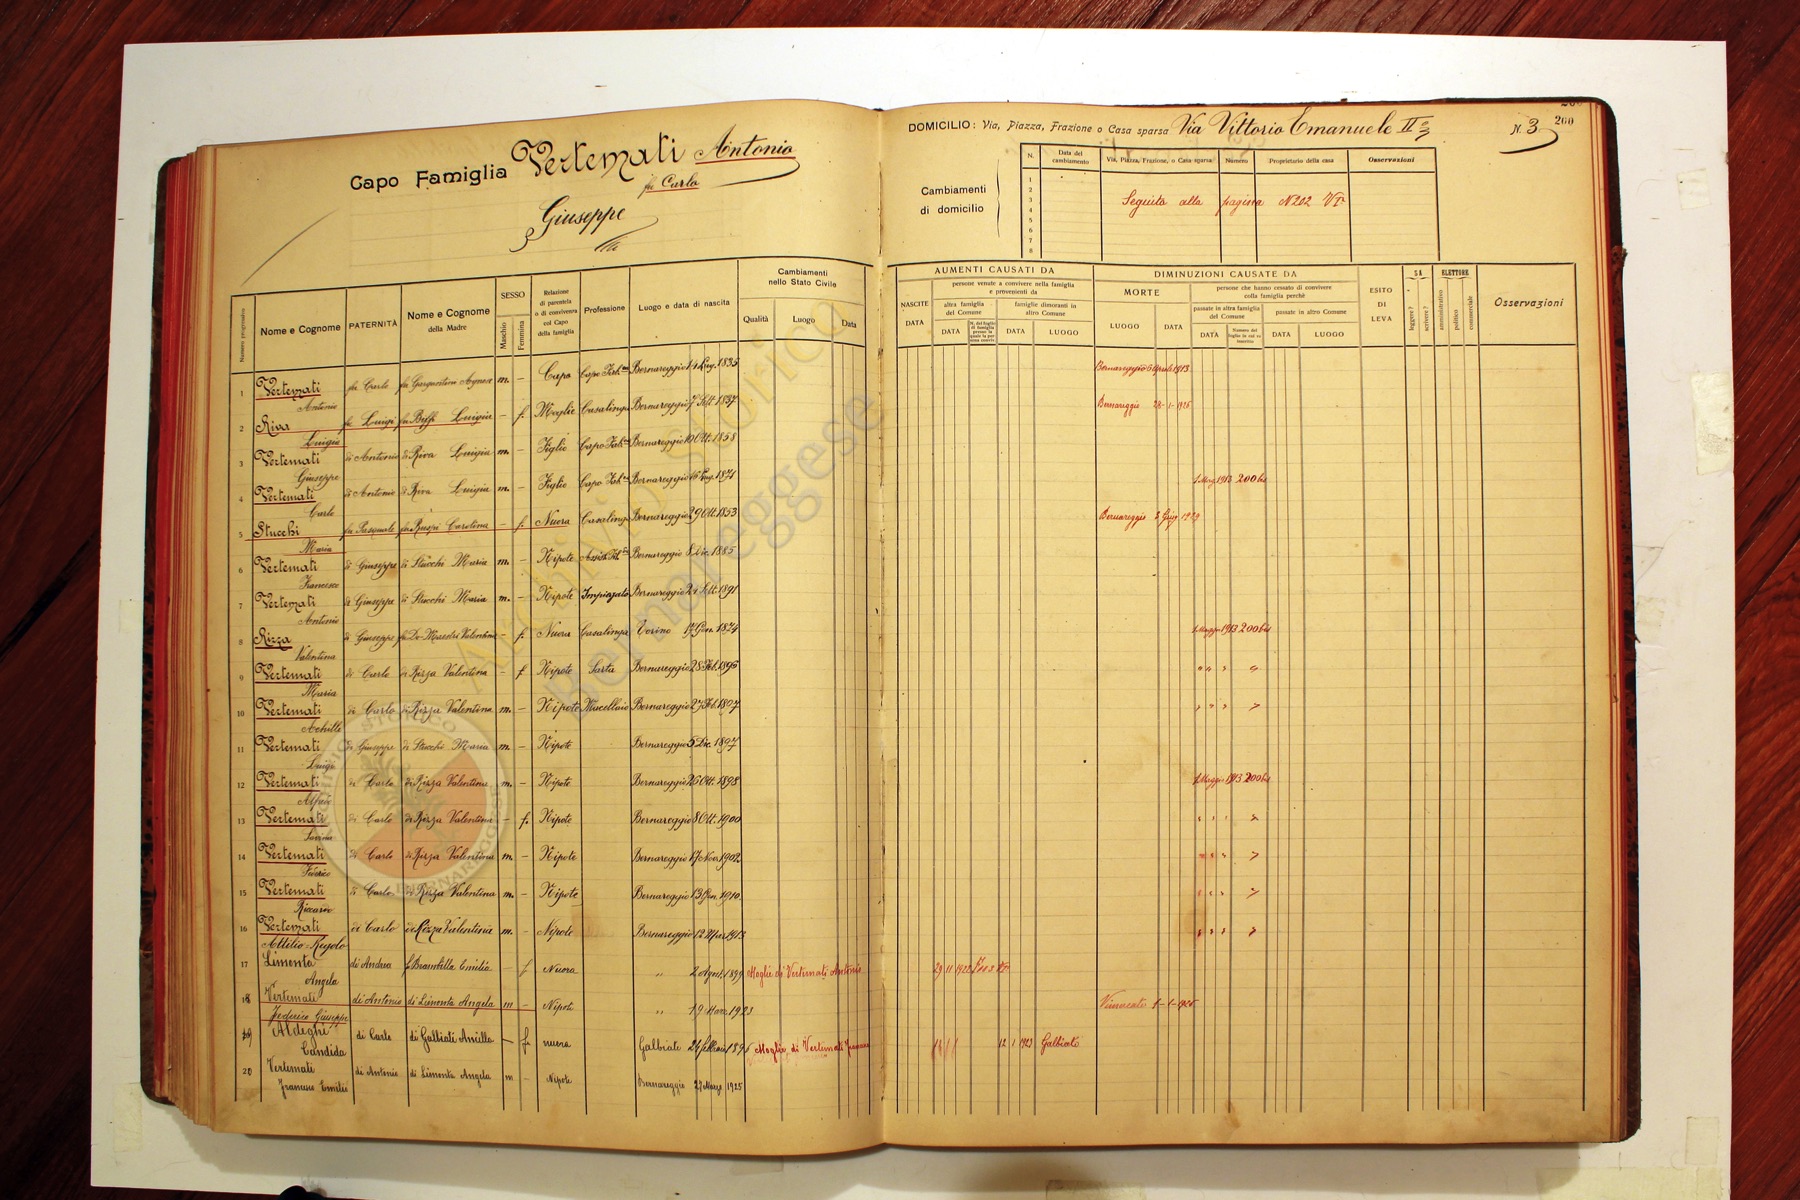 Capo Famiglia Vertemati Antonio
fu Carlo
Giuseppe
DOMICILIO: Via, Piazza, Frazione o Casa sparsa Via Vittorio Emanuele II°
N. 3
200
Cambiamenti di domicilio
N. Data del cambiamento Via, Piazza, Frazione, o Casa sparsa Numero Proprietario della casa Osservazioni
1
2
3
4
5
6
7
8
Seguito alla pagina N 202
Numero progressivo
Nome e Cognome
PATERNITÀ
Nome e Cognome della Madre
SESSO
Maschio
Femmina
Relazione di parentela o di convivenza col Capo della famiglia
Professione
Luogo e data di nascita
Cambiamenti nello Stato Civile
Qualità Luogo Data
AUMENTI CAUSATI DA
NASCITE
DATA
persone venute a convivere nella famiglia e provenienti da
altra famiglia del Comune
DATA
famiglie dimoranti in altro Comune
DATA LUOGO
DIMINUZIONI CAUSATE DA
MORTE
LUOGO DATA
persone che hanno cessato di convivere colla famiglia perchè
passate in altra famiglia del Comune
DATA
Numero del foglio in cui su inscritto
passate in altro Comune
DATA LUOGO
ESITO DI LEVA
SA
leggere?
scrivere?
ELETTORE
amministrativo
politico
commerciale
Osservazioni
1 Vertemati Antonio fu Carlo fu Gargantina Agnese m. – Capo Bernareggio 14 1835 Bernareggio 6 Aprile 1913
2 Riva Luigia fu Luigi fu Biffi Luigia – f. Moglie Casalinga Bernareggio 7 Sett. 1837 Bernareggio 28-1-1926
3 Vertemati Giuseppe di Antonio di Riva Luigia m. – Figlio Bernareggio 10 Ott. 1858
4 Vertemati Carlo di Antonio di Riva Luigia m. – Figlio Bernareggio 1871 1 Magg 1913 200 bis
5 Stucchi Maria fu Pasquale fu Carolina – f. Nuora Casalinga Bernareggio 29 Ott. 1853 Bernareggio 2 Giug 1929
6 Vertemati Francesco di Giuseppe di Stucchi Maria m. – Nipote Bernareggio 8 Dic. 1885
7 Vertemati Antonio di Giuseppe di Stucchi Maria m. – Nipote Impiegato Bernareggio 24 Sett. 1891
8 Rizza Valentina di Giuseppe Valentina – f. Nuora Casalinga Torino 17 Gen. 1874 1 Maggio 1913 200 bis
9 Vertemati Maria di Carlo di Rizza Valentina – f Nipote Sarta Bernareggio 28 Feb. 1896 " " " "
10 Vertemati Achille di Carlo di Rizza Valentina m. – Nipote Macellaio Bernareggio 27 Feb. 1897 " " " "
11 Vertemati Luigi di Giuseppe di Stucchi Maria m – Nipote Bernareggio 5 Dic. 1897
12 Vertemati Alfredo di Carlo di Rizza Valentina m. – Nipote Bernareggio 26 Ott. 1898 1 Maggio 1913 200 bis
13 Vertemati di Carlo di Rizza Valentina – f. Nipote Bernareggio 8 Ott. 1900 " " " "
14 Vertemati Federico di Carlo di Rizza Valentina m – Nipote Bernareggio 17 Nov. 1902 " " " "
15 Vertemati Riccardo di Carlo di Rizza Valentina m. – Nipote Bernareggio 13 Gen. 1910 " " " "
16 Vertemati Attilio-Regolo di Carlo di Rizza Valentina m – Nipote Bernareggio 12 Mar. 1913 " " " "
17 Limonta Angela di Andrea f. Brambilla Emilia – f Nuora " 2 Agos. 1899 Moglie di Vertemati Antonio 29 11 1922
18 Vertemati Federico Giuseppe di Antonio di Limonta Angela m – Nipote " 19 Marz. 1923 Vimercate
Aldeghi Candida di Carlo di Galbiati Ancilla – f. nuora Galbiate 24 febbraio Moglie di Vertemati Francesco 12 1 1923 Galbiate
Vertemati Francesco Emilio di Antonio di Limonta Angela m – Nipote Bernareggio 27 Marzo 1925
Archivio Storico
Bernareggese
ARCHIVIO STORICO
BERNAREGGESE